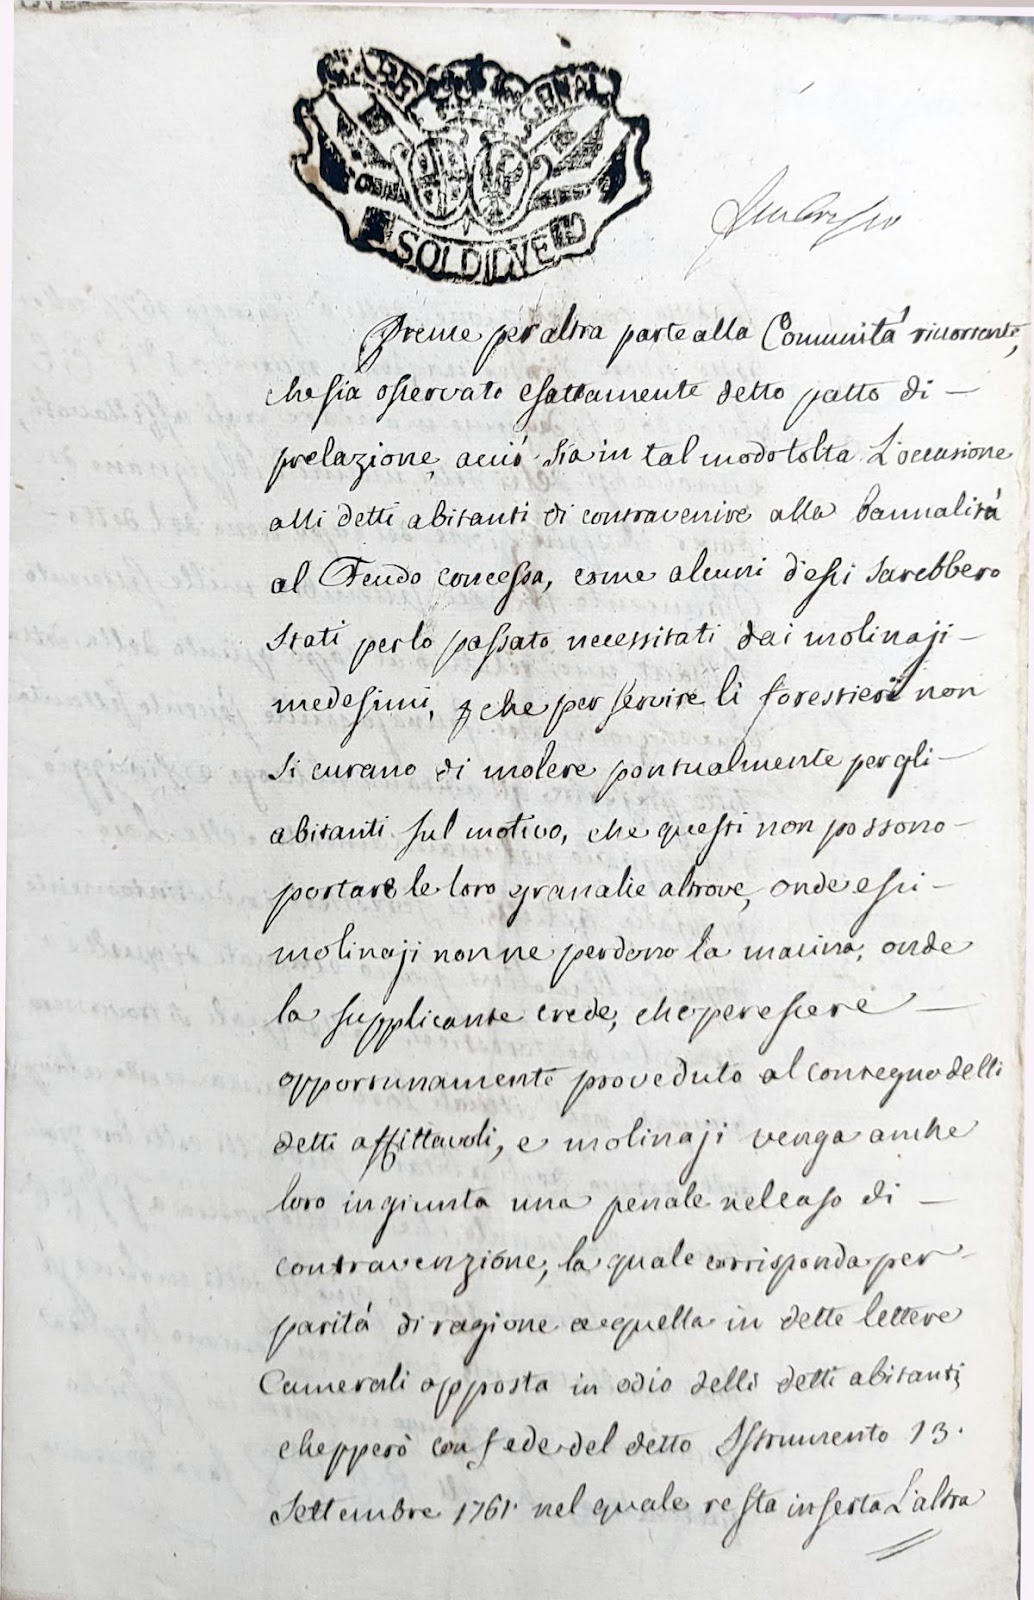 SOLDI DVE
Preme per altra parte alla Comunità ricorrente,
che sia osservato esattamente detto patto di –
prelazione, acciò sia in tal modo tolta l'occasione
alli detti abitanti di contravenire alla bannalità
al Feudo concessa, come alcuni d'essi sarebbero
stati per lo passato necessitati dai molinaji –
medesimi, che per servire li forestieri non
si curano di molere pontualmente per gli –
abitanti sul motivo, che questi non possono –
portare le loro granalie altrove, onde essi –
molinaji non ne perdono la macina, onde
la supplicante crede, che per essere –
opportunamente proveduto al contegno delli
detti affittavoli, e molinaji venga anche
loro ingiunta una penale nel caso di –
contravenzione, la quale corrisponda per –
parità di ragione a quella in dette lettere
Camerali apposta in odio delli detti abitanti,
che pperò con fede del detto Istrumento 13.
Settembre 1761. nel quale resta inserta l'altra